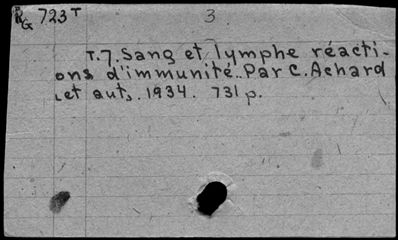 RG 723T
3
т.7. Sang et lymphe réacti-
ons d'immunité. Par C. Achard
et aut. 1934. 731 p.